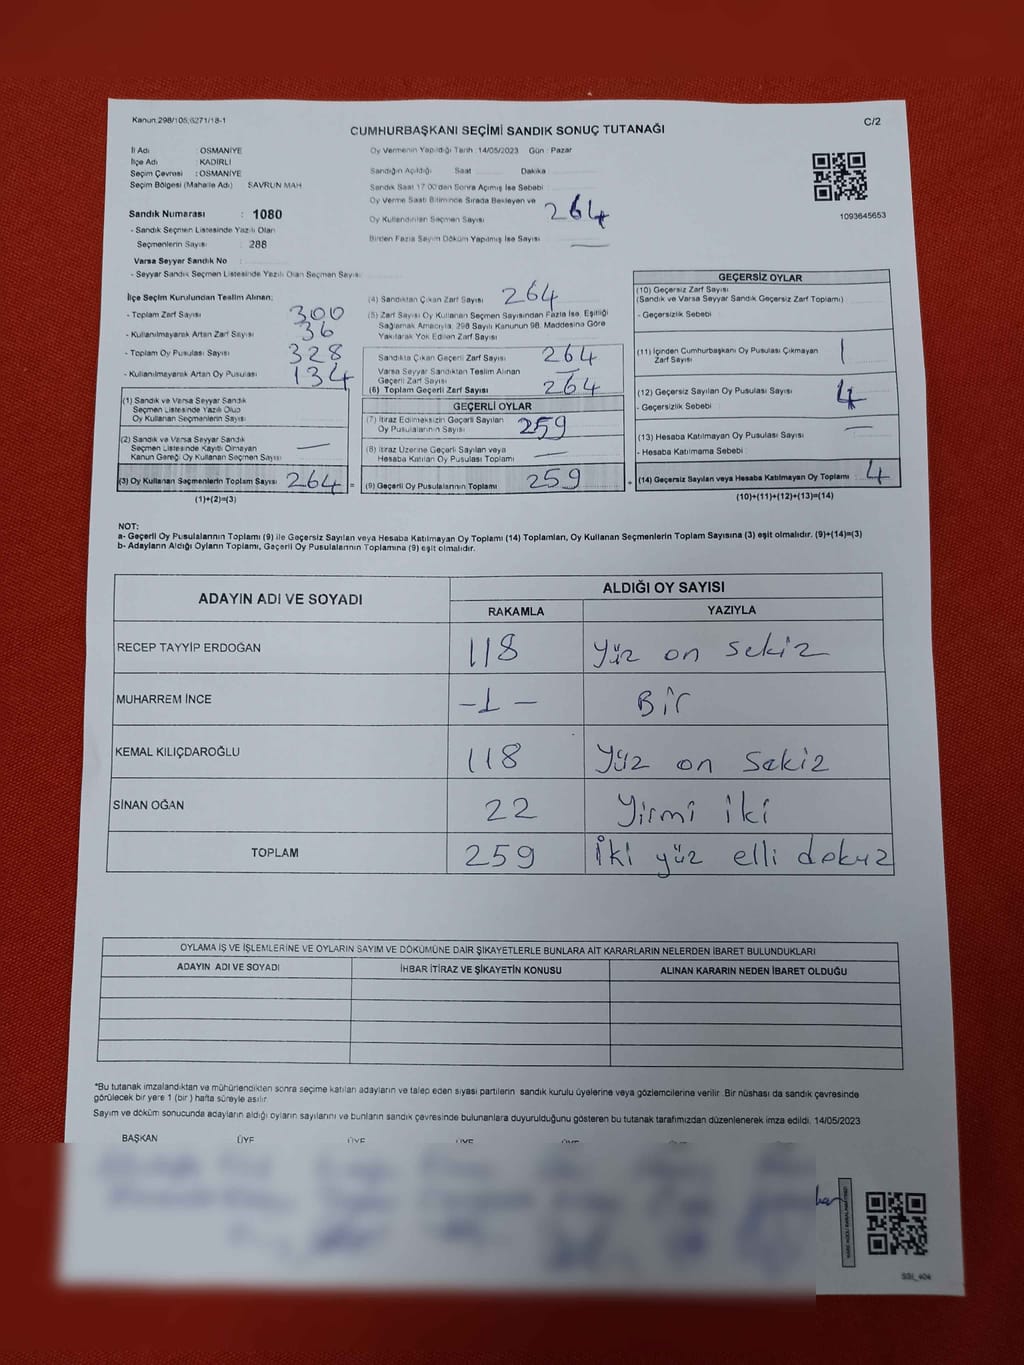 Kanun.298/105,6271/18-1
C/2
CUMHURBAŞKANI SEÇİMİ SANDIK SONUÇ TUTANAĞI
İl Adı : OSMANİYE
İlçe Adı : KADİRLİ
Seçim Çevresi : OSMANİYE
Seçim Bölgesi (Mahalle Adı) SAVRUN MAH
Sandık Numarası : 1080
- Sandık Seçmen Listesinde Yazılı Olan
Seçmenlerin Sayısı : 288
Varsa Seyyar Sandık No :
- Seyyar Sandık Seçmen Listesinde Yazılı Olan Seçmen Sayısı
Oy Vermenin Yapıldığı Tarih :14/05/2023 Gün : Pazar
Sandığın Açıldığı Saat Dakika
Sandık Saat 17.00'den Sonra Açılmış İse Sebebi
Oy Verme Saati Bitiminde Sırada Bekleyen ve
Oy Kullandırılan Seçmen Sayısı 264
Birden Fazla Sayım Döküm Yapılmış İse Sayısı —
1093645653
İlçe Seçim Kurulundan Teslim Alınan;
- Toplam Zarf Sayısı 300
- Kullanılmayarak Artan Zarf Sayısı 36
- Toplam Oy Pusulası Sayısı 328
- Kullanılmayarak Artan Oy Pusulası 134
(1) Sandık ve Varsa Seyyar Sandık
Seçmen Listesinde Yazılı Olup
Oy Kullanan Seçmenlerin Sayısı
(2) Sandık ve Varsa Seyyar Sandık
Seçmen Listesinde Kayıtlı Olmayan
Kanun Gereği Oy Kullanan Seçmen Sayısı —
(3) Oy Kullanan Seçmenlerin Toplam Sayısı 264 =
(1)+(2)=(3)
(4) Sandıktan Çıkan Zarf Sayısı 264
(5) Zarf Sayısı Oy Kullanan Seçmen Sayısından Fazla İse, Eşitliği
Sağlamak Amacıyla, 298 Sayılı Kanunun 98. Maddesine Göre
Yakılarak Yok Edilen Zarf Sayısı
Sandıkta Çıkan Geçerli Zarf Sayısı 264
Varsa Seyyar Sandıktan Teslim Alınan
Geçerli Zarf Sayısı —
(6) Toplam Geçerli Zarf Sayısı 264
GEÇERLİ OYLAR
(7) İtiraz Edilmeksizin Geçerli Sayılan
Oy Pusulalarının Sayısı 259
(8) İtiraz Üzerine Geçerli Sayılan veya
Hesaba Katılan Oy Pusulası Toplamı —
(9) Geçerli Oy Pusulalarının Toplamı 259 +
GEÇERSİZ OYLAR
(10) Geçersiz Zarf Sayısı
(Sandık ve Varsa Seyyar Sandık Geçersiz Zarf Toplamı)
- Geçersizlik Sebebi
(11) İçinden Cumhurbaşkanı Oy Pusulası Çıkmayan
Zarf Sayısı 1
(12) Geçersiz Sayılan Oy Pusulası Sayısı 4
- Geçersizlik Sebebi
(13) Hesaba Katılmayan Oy Pusulası Sayısı —
- Hesaba Katılmama Sebebi
(14) Geçersiz Sayılan veya Hesaba Katılmayan Oy Toplamı 4
(10)+(11)+(12)+(13)=(14)
NOT:
a- Geçerli Oy Pusulalarının Toplamı (9) ile Geçersiz Sayılan veya Hesaba Katılmayan Oy Toplamı (14) Toplamları, Oy Kullanan Seçmenlerin Toplam Sayısına (3) eşit olmalıdır. (9)+(14)=(3)
b- Adayların Aldığı Oyların Toplamı, Geçerli Oy Pusulalarının Toplamına (9) eşit olmalıdır.
ADAYIN ADI VE SOYADI ALDIĞI OY SAYISI
RAKAMLA YAZIYLA
RECEP TAYYİP ERDOĞAN 118 Yüz on sekiz
MUHARREM İNCE -1- Bir
KEMAL KILIÇDAROĞLU 118 Yüz on sekiz
SİNAN OĞAN 22 Yirmi iki
TOPLAM 259 İki yüz elli dokuz
OYLAMA İŞ VE İŞLEMLERİNE VE OYLARIN SAYIM VE DÖKÜMÜNE DAİR ŞİKAYETLERLE BUNLARA AİT KARARLARIN NELERDEN İBARET BULUNDUKLARI
ADAYIN ADI VE SOYADI İHBAR İTİRAZ VE ŞİKAYETİN KONUSU ALINAN KARARIN NEDEN İBARET OLDUĞU
*Bu tutanak imzalandıktan ve mühürlendikten sonra seçime katılan adayların ve talep eden siyasi partilerin sandık kurulu üyelerine veya gözlemcilerine verilir. Bir nüshası da sandık çevresinde
görülecek bir yere 1 (bir) hafta süreyle asılır.
Sayım ve döküm sonucunda adayların aldığı oyların sayılarını ve bunların sandık çevresinde bulunanlara duyurulduğunu gösteren bu tutanak tarafımızdan düzenlenerek imza edildi. 14/05/2023
BAŞKAN ÜYE ÜYE ÜYE ÜYE